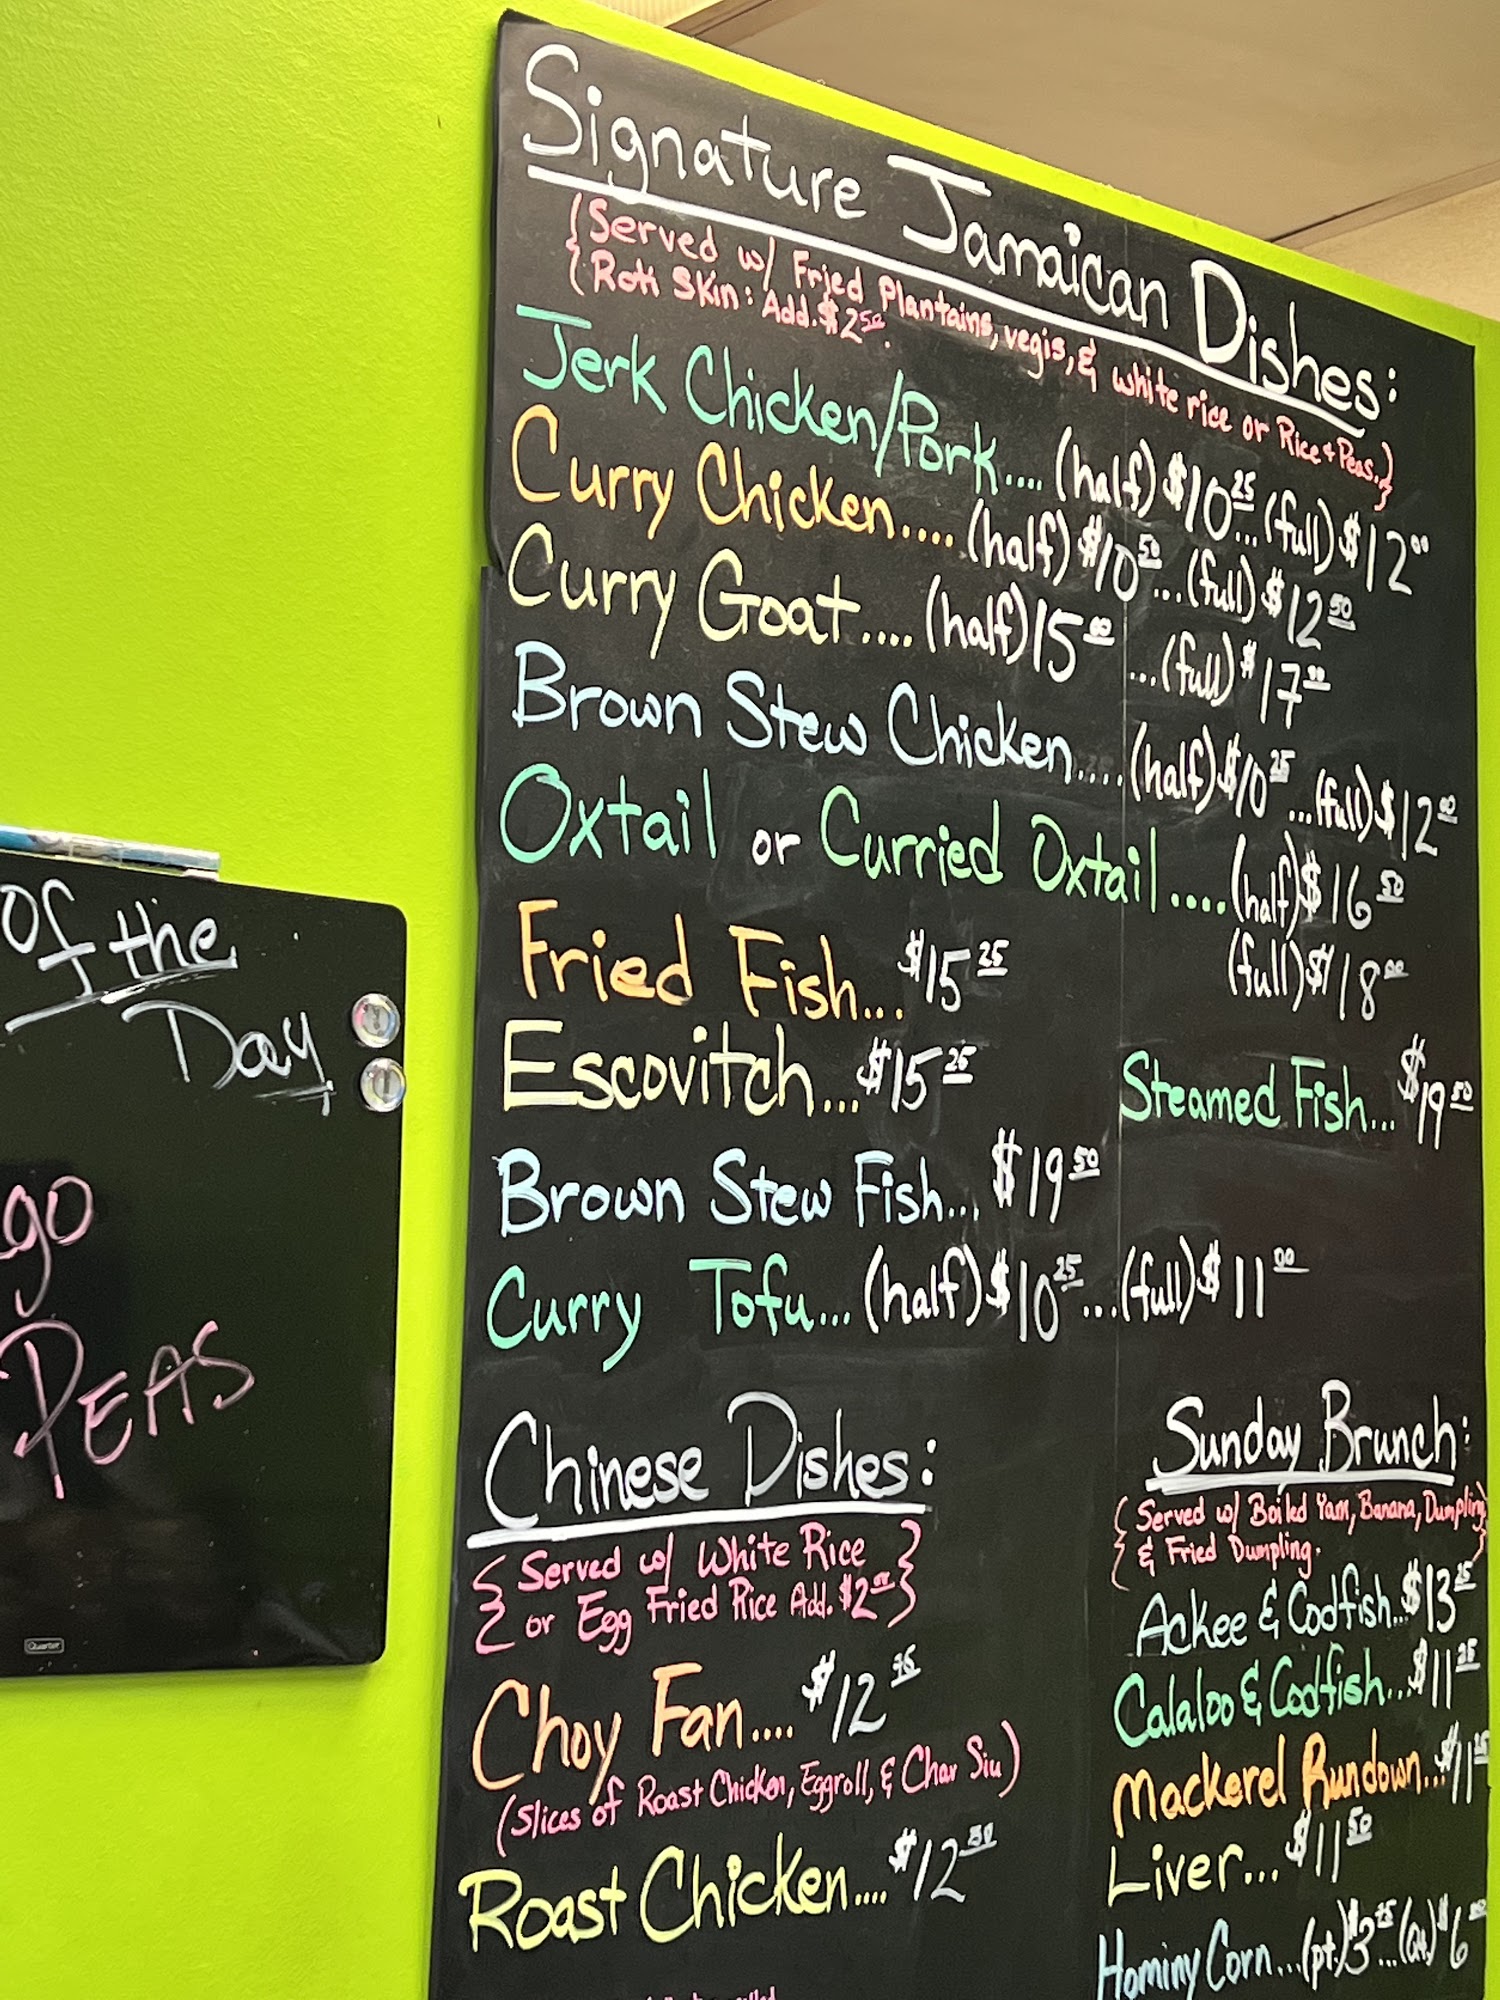 Signature Jamaican Dishes:
{Served w/ Fried Plantains, vegis, & white rice or Rice & Peas.}
Roti Skin: Add. $2.50.
Jerk Chicken/Pork.... (half) $10.25...(full) $12.00
Curry Chicken.... (half) $10.50...(full) $12.50
Curry Goat.... (half) 15.00 ...(full) $17.00
Brown Stew Chicken.... (half) $10.25...(full) $12.00
Oxtail or Curried Oxtail.... (half) $16.50
(full) $18.00
Fried Fish... $15.25
Escovitch... $15.25
Steamed Fish... $19.50
Brown Stew Fish... $19.50
Curry Tofu... (half) $10.25...(full) $11.00
Chinese Dishes:
{Served w/ White Rice
or Egg Fried Rice Add. $2.00}
Choy Fan.... $12.75
(Slices of Roast Chicken, Eggroll, & Char Siu)
Roast Chicken.... $12.50
Sunday Brunch:
{Served w/ Boiled Yam, Banana, Dumpling
& Fried Dumpling.}
Ackee & Codfish...$13.25
Calaloo & Codfish...$11.25
Mackerel Rundown...$11.25
Liver... $11.50
Hominy Corn...(pt.)$3.75...(Qt.) $6
Of the
Day
go
PEAS
Quartet